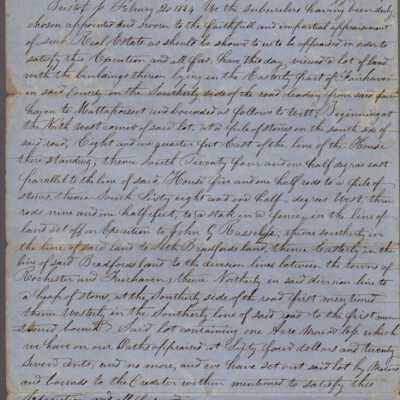 Bristol ss February 2, 1854 We the subscribers having been duly
chosen appointed and sworn to the faithfull and impartial appraisement
of such Real Estate as should be shown to us to be appraised in order to
satisfy this Execution and all fees, have this day, viewed a lot of land
with the buildings thereon lying in the Easterly part of Fairhaven
in said County on the Southerly side of the road leading from said Fair
haven to Mattapoisett and bounded as follows to Witt; Beginning at
the North west corner of said lot, at a pile of stones on the south side of
said road, Eight and one quarter feet East of the line of the House
there standing, thence South Twenty four and one half degrees east
parallel to the line of said House five and one half rods to a pile of
stones, thence South Sixty eight and one half degrees West three
rods nine and one half feet, to a stake in a fence, in the line of
land set off on Execution to John G thence southerly in
the line of said land to Seth Bradfords land, thence Easterly in the
line of said Bradfords land to the division lines between the towns of
Rochester and Fairhaven, thence Northerly in said division line to
a heap of stones, at the Southerly side of the road first mentioned
thence Westerly in the Southerly line of said road to the first men-
tioned bound. Said lot containing one Acre more or less which
we have on our Oaths appraised at fifty four dollars and twenty
seven cents, and no more, and we have set out said lot by Metes
and bounds to the Creditor within mentioned to satisfy this
Execution and all